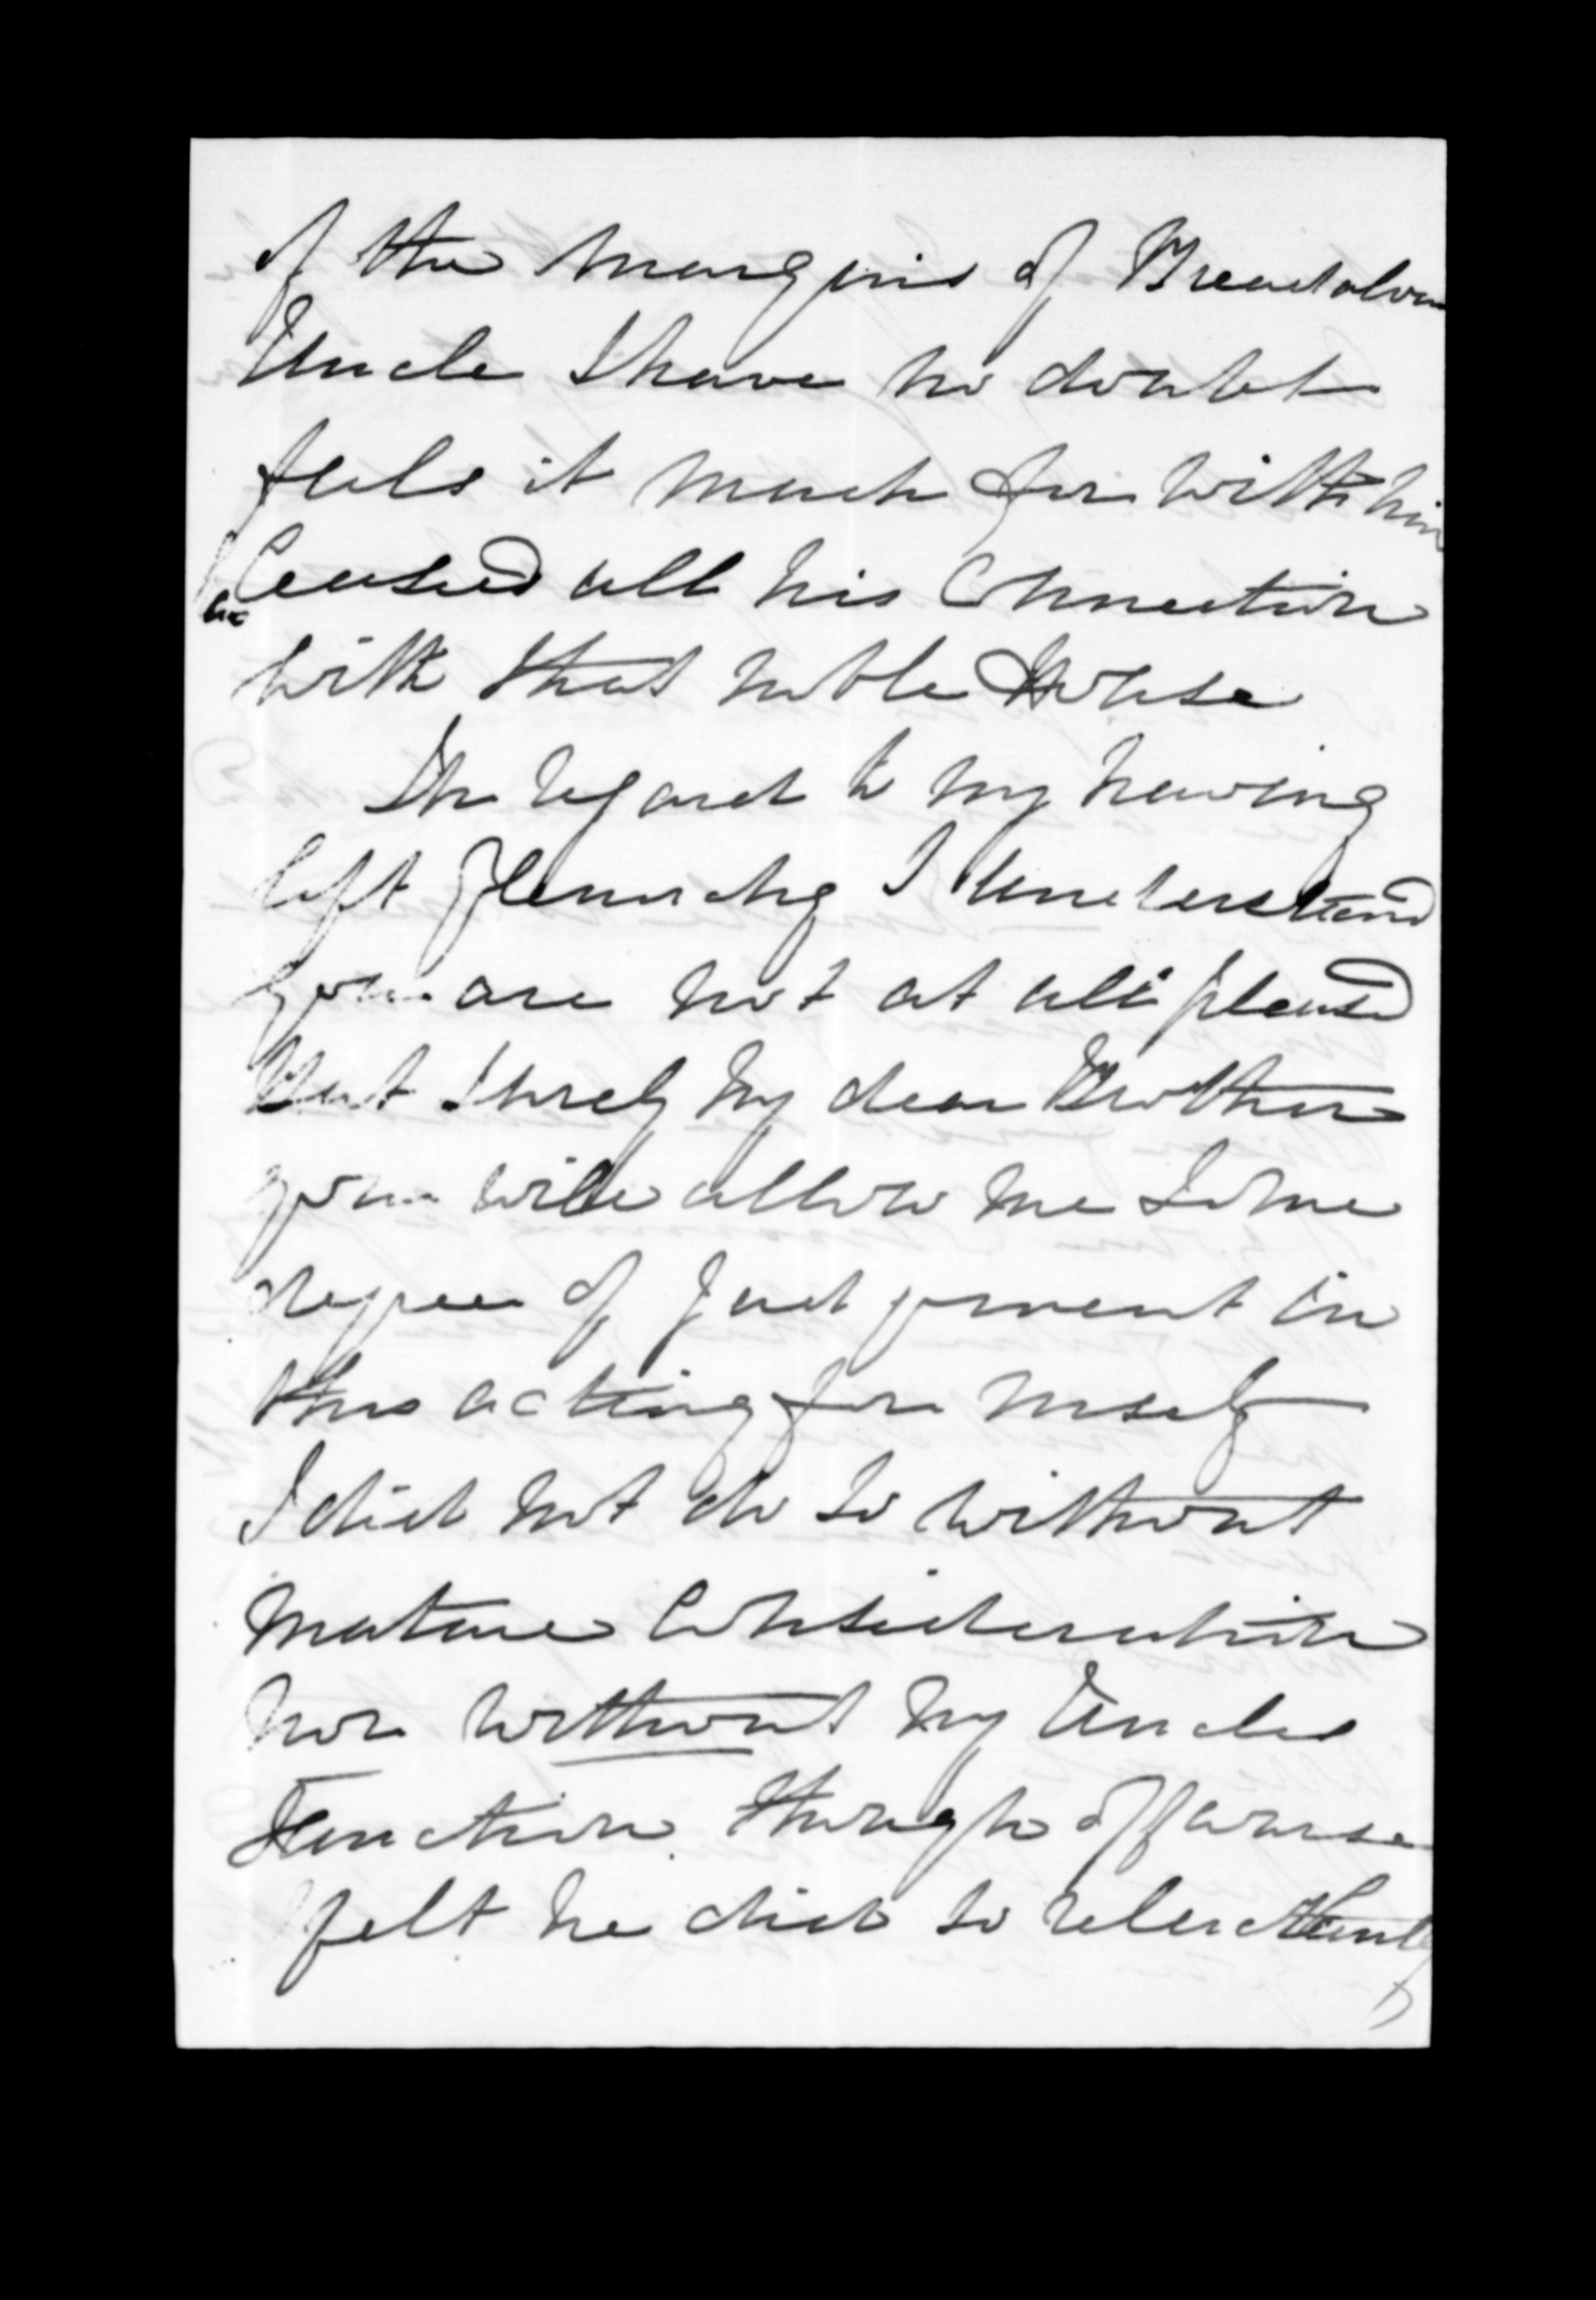 of the Marquis of Breadalban
Uncle I have no doubt
feels it much for with him
ceased all his Connection
with that noble House
In regard to my having
left Glenurchy I understand
you are not at all pleased
But Surely my dear Brother
you will allow me Some
degree of Judgement in
thus acting for mself
I did not do so without
Mature Consideration
nor without my Uncles
Sanction though offcourse
felt he did so reluctantly